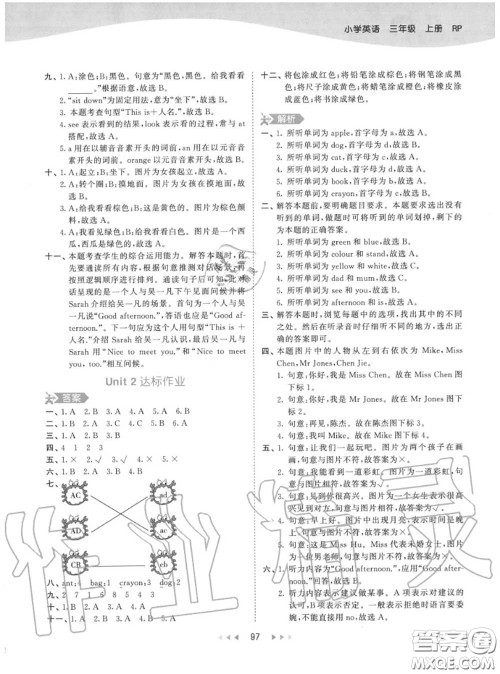 小学英语 三年级 上册 RP
九、1. A:涂色;B:黑色。句意为“黑色。给我看看
……”根据语意，故选 B。
2. “sit down”为固定用法,意为“坐下”,故选 B。
3. 本题考查句型“This is+人名。”,故选 B。
4. see 表示看到的结果,look 表示看的过程,常与 at
搭配,故选 B。
5. a 用在以辅音音素开头的词前。an 用在以元音音
素开头的词前。orange 以元音音素开头,故选 B。
十、1. A:起立;B:坐下。图片为女孩起立,故选 A。
2. A:转个圈;B:摸地面。图片为女孩正在摸地面,故
选 B。
3. A:给我看看棕色;B:这是黄色的。图片为棕色颜
料,故选 A。
4. A:我看见绿色;B:我看见红色。图片是一个绿色的
西瓜,西瓜是绿色的,故选 A。
十一、本题考查学生的综合运用能力。解答本题时,首
先通读所有内容,根据句意推测对话场景,再
按照逻辑顺序进行排列。通读句子后可知,此对
话呈现的是一个人与吴一凡下午见面问候并将
Sarah 介绍给吴一凡的场景。首句为一个人与吴
一凡说“Good afternoon.”,答语也应是“Good af-
ternoon.”。下一句应为这个人用句型“This is+人
名。”介绍 Sarah 给吴一凡认识,最后吴一凡与
Sarah 用“Nice to meet you,”和“Nice to meet
you, too.”相互问候。
Unit 2 达标作业
答案
一、1. A 2. B 3. A 4. A 5. A 6. B
二、1. B 2. A 3. C 4. C 5. A 6. B
三、4 1 2 3
四、1. × 2. √ 3. × 4. √ 5. ×
六、1. B 2. A 3. A 4. B 5. B
七、
AC ad
AD ac
CB cb
八、ant:1 bag:1 crayon:3 dog:2
九、2 7 1 8 5 3 4 6
十、1. A 2. B 3. A 4. B 5. A
十一、1. A 2. B 3. A 4. B 5. B
十二、将包涂成红色;将铅笔涂成棕色;将钢笔涂成黑
色;将尺子涂成黄色;将蜡笔涂成橙色;将橡皮涂成蓝
色;将书涂成绿色。
解析
一、1. 所听单词为 apple,首字母为 a,故选 A。
2. 所听单词为 dog,首字母为 d,故选 B。
3. 所听单词为 cat,首字母为 c,故选 A。
4. 所听单词为 duck,首字母为 d,故选 A。
5. 所听单词为 book,首字母为 b,故选 A。
6. 所听单词为 crayon,首字母为 c,故选 B。
二、解答本题前,要明确题目要求。本题要求选出没有
听到的单词,做题时可将听到的单词划掉,剩下的
为本题的正确答案。
1. 所听单词为 green 和 blue,故选 B。
2. 所听单词为 colour 和 stand,故选 A。
3. 所听单词为 yellow 和 white,故选 C。
4. 所听单词为 dad 和 mum,故选 C。
5. 所听单词为 see 和 red,故选 A。
6. 所听单词为 afternoon 和 is,故选 B。
三、解答本题时,浏览每题中的选项,找出其中的不同
之处。然后在听录音时仔细听不同的地方,选出正
确的答案即可。
四、本题图片中的人物从左到右依次为 Mike, Miss
Chen, Mr Jones, Chen Jie。
1. 句意:你好,我是 Miss Chen。故 Miss Chen 图标 1。
2. 句意:你好,我是 Mr Jones。故 Mr Jones 图标 2。
3. 句意:再见,陈杰。故在陈杰图片下标 3。
4. 句意:我叫 Mike。故在 Mike 图片下标 4。
五、1. 句意:让我们一起画画吧。图片为两个孩子在画
画,句意与图片不符,故答案为×。
2. 句意:我看到一道彩虹。图片为一道彩虹,句意
与图片相符,故答案为√。
3. 句意:见到你很高兴。图片为两个孩子在很高兴
见到对方,句意与图片相符,故答案为×。
4. 句意:早上好。图片中出现月亮,表示为晚上,句
意与图片不符,故答案为√。
5. 句意:这是 Miss Hu。Miss 代表未婚女士,图片
为一位男老师,句意与图片不符,故答案为×。
六、1. 听力内容为“Good afternoon.”,应用“Good afternoon.”
回答,故选 B。
2. 听力内容为“让我们涂色。”,A 表示同意对方的意
见,B 表示否定意见。一般表示拒绝时语言要委
婉,不能直接说 No,故答案为 A。
97
作业精灵
答案圈
MXQE.COM